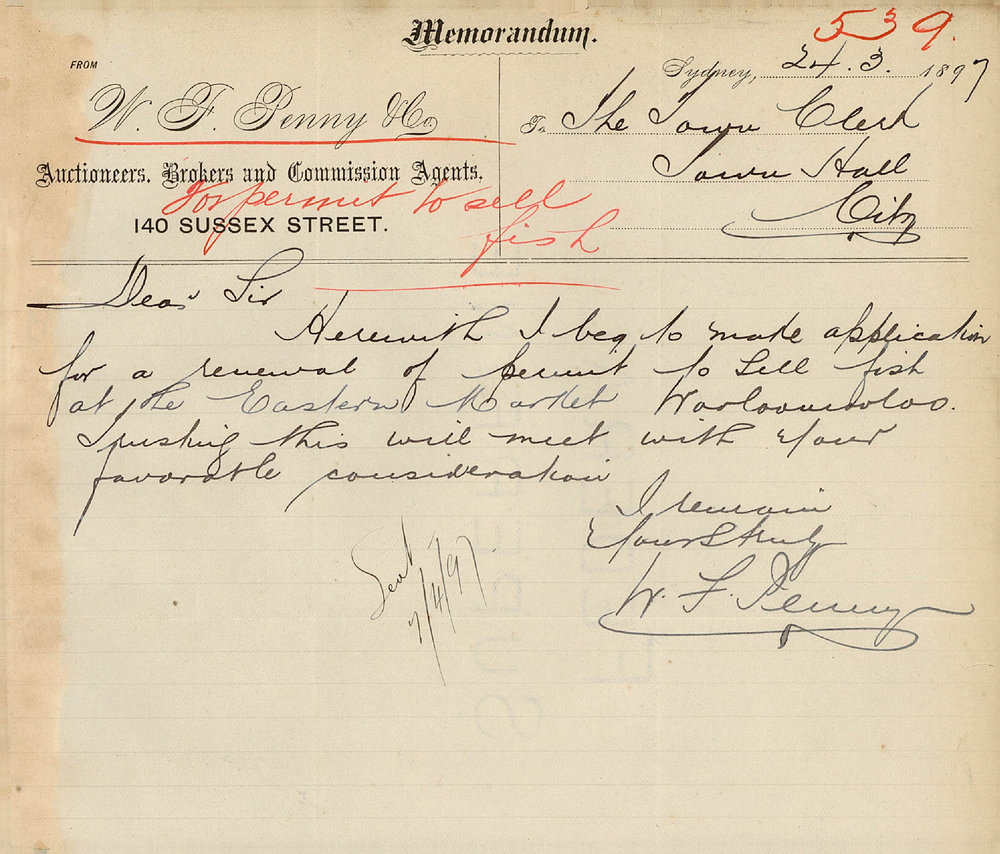 Memorandum.
539.
FROM
Sydney, 24.3. 1897
W. F. Penny & Co.
To The Town Clerk
Auctioneers, Brokers and Commission Agents.
Town Hall
For permit to sell
140 SUSSEX STREET.
City
fish
Dear Sir
Herewith I beg to make application
for a renewal of permit to sell fish
at the Eastern Market Wooloomooloo.
Trusting this will meet with your
favorable consideration
I remain
Yours truly
W. F. Penny
7/4/97